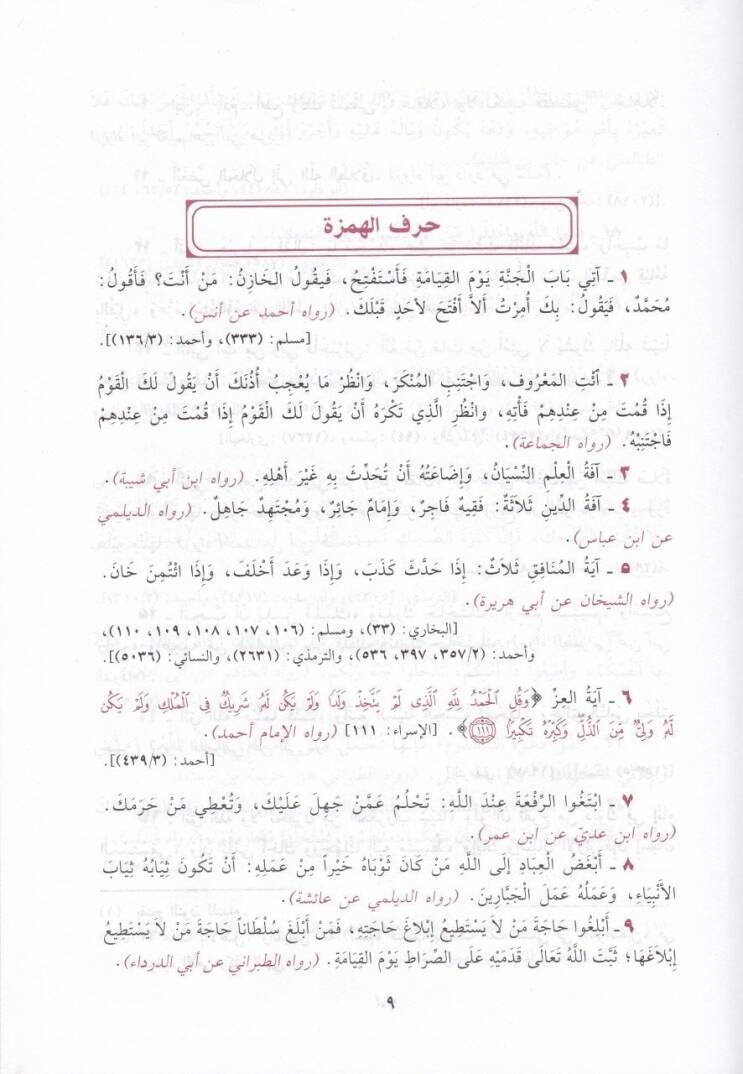 حرف الهمزة
١ ـ آتِي بَابَ الْجَنَّةِ يَوْمَ القِيَامَةِ فَأَسْتَفْتِحُ، فَيَقُولُ الخَازِنُ: مَنْ أَنْتَ؟ فَأَقُولُ:
مُحَمَّدٌ، فَيَقُولُ: بِكَ أُمِرْتُ أَلاَّ أَفْتَحَ لأَحَدٍ قَبْلَكَ. (رواه أحمد عن أنس).
[مسلم: (٣٣٣)، وأحمد: (١٣٦/٣)].
٢ ـ ائْتِ المَعْرُوفَ، وَاجْتَنِبِ المُنْكَرَ، وَانْظُرْ مَا يُعْجِبُ أُذُنَكَ أَنْ يَقُولَ لَكَ القَوْمُ
إِذَا قُمْتَ مِنْ عِنْدِهِمْ فَأْتِهِ، وانْظُرِ الَّذِي تَكْرَهُ أَنْ يَقُولَ لَكَ القَوْمُ إِذَا قُمْتَ مِنْ عِنْدِهِمْ
فَاجْتَنِبْهُ. (رواه الجماعة).
٣ ـ آفَةُ العِلْمِ النِّسْيَانُ، وَإِضَاعَتُهُ أَنْ تُحَدِّثَ بِهِ غَيْرَ أَهْلِهِ. (رواه ابن أبي شيبة).
٤ ـ آفَةُ الدِّينِ ثَلاَثَةٌ: فَقِيهٌ فَاجِرٌ، وَإِمَامٌ جَائِرٌ، وَمُجْتَهِدٌ جَاهِلٌ. (رواه الديلمي
عن ابن عباس).
٥ ـ آيَةُ المُنَافِقِ ثَلاَثٌ: إِذَا حَدَّثَ كَذَبَ، وَإِذَا وَعَدَ أَخْلَفَ، وَإِذَا ائْتُمِنَ خَانَ.
(رواه الشيخان عن أبي هريرة).
[البخاري: (٣٣)، ومسلم: (١٠٦، ١٠٧، ١٠٨، ١٠٩، ١١٠)،
وأحمد: (٣٥٧/٢، ٣٩٧، ٥٣٦)، والترمذي: (٢٦٣١)، والنسائي: (٥٠٣٦)].
٦ ـ آيَةُ العِزِّ ﴿وَقُلِ ٱلْحَمْدُ لِلَّهِ ٱلَّذِى لَمْ يَتَّخِذْ وَلَدًا وَلَمْ يَكُن لَّهُۥ شَرِيكٌ فِى ٱلْمُلْكِ وَلَمْ يَكُن
لَّهُۥ وَلِىٌّ مِّنَ ٱلذُّلِّ وَكَبِّرْهُ تَكْبِيرًۢا ١١١﴾. [الإسراء: ١١١] (رواه الإمام أحمد).
[أحمد: (٤٣٩/٣)].
٧ ـ ابْتَغُوا الرِّفْعَةَ عِنْدَ اللَّهِ: تَحْلُمُ عَمَّنْ جَهِلَ عَلَيْكَ، وَتُعْطِي مَنْ حَرَمَكَ.
(رواه ابن عديّ عن ابن عمر).
٨ ـ أَبْغَضُ العِبَادِ إِلَى اللَّهِ مَنْ كَانَ ثَوْبَاهُ خَيْراً مِنْ عَمَلِهِ: أَنْ تَكُونَ ثِيَابُهُ ثِيَابَ
الأَنْبِيَاءِ، وَعَمَلُهُ عَمَلَ الجَبَّارِينَ. (رواه الديلمي عن عائشة).
٩ ـ أَبْلِغُوا حَاجَةَ مَنْ لاَ يَسْتَطِيعُ إِبْلاَغَ حَاجَتِهِ، فَمَنْ أَبْلَغَ سُلْطَاناً حَاجَةَ مَنْ لاَ يَسْتَطِيعُ
إِبْلاَغَهَا؛ ثَبَّتَ اللَّهُ تَعَالَى قَدَمَيْهِ عَلَى الصِّرَاطِ يَوْمَ القِيَامَةِ. (رواه الطبراني عن أبي الدرداء).
٩